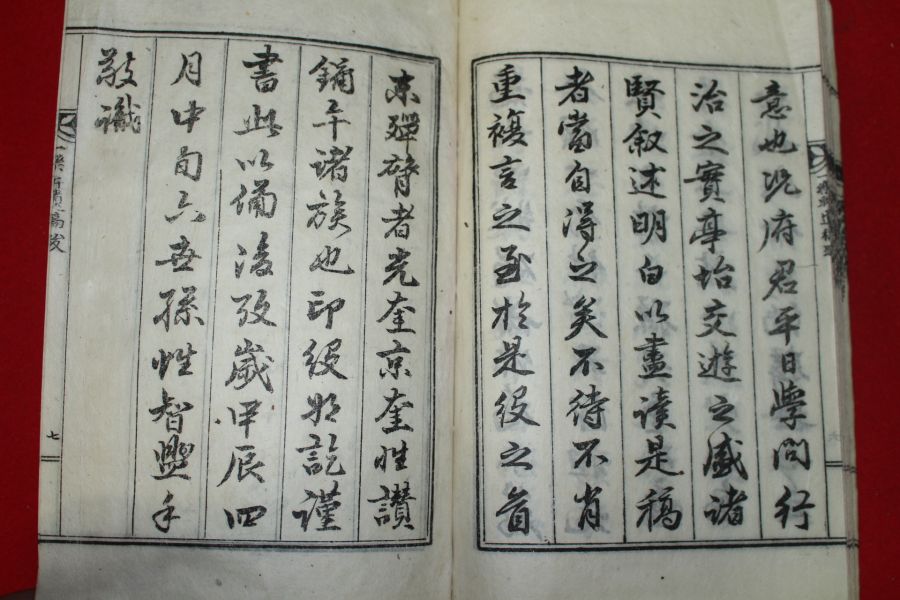 意也況府君平日學問行
治之實亭坮交遊之盛諸
賢叙述明白以盡讀是稿
者當自得之矣不待不肖
重複言之至於是役之首
末殫膂者光奎京奎性讃
鏽午諸族也印役旣訖謹
書此以備後攷歲甲辰四
月中旬六世孫性智盥手
敬識
七